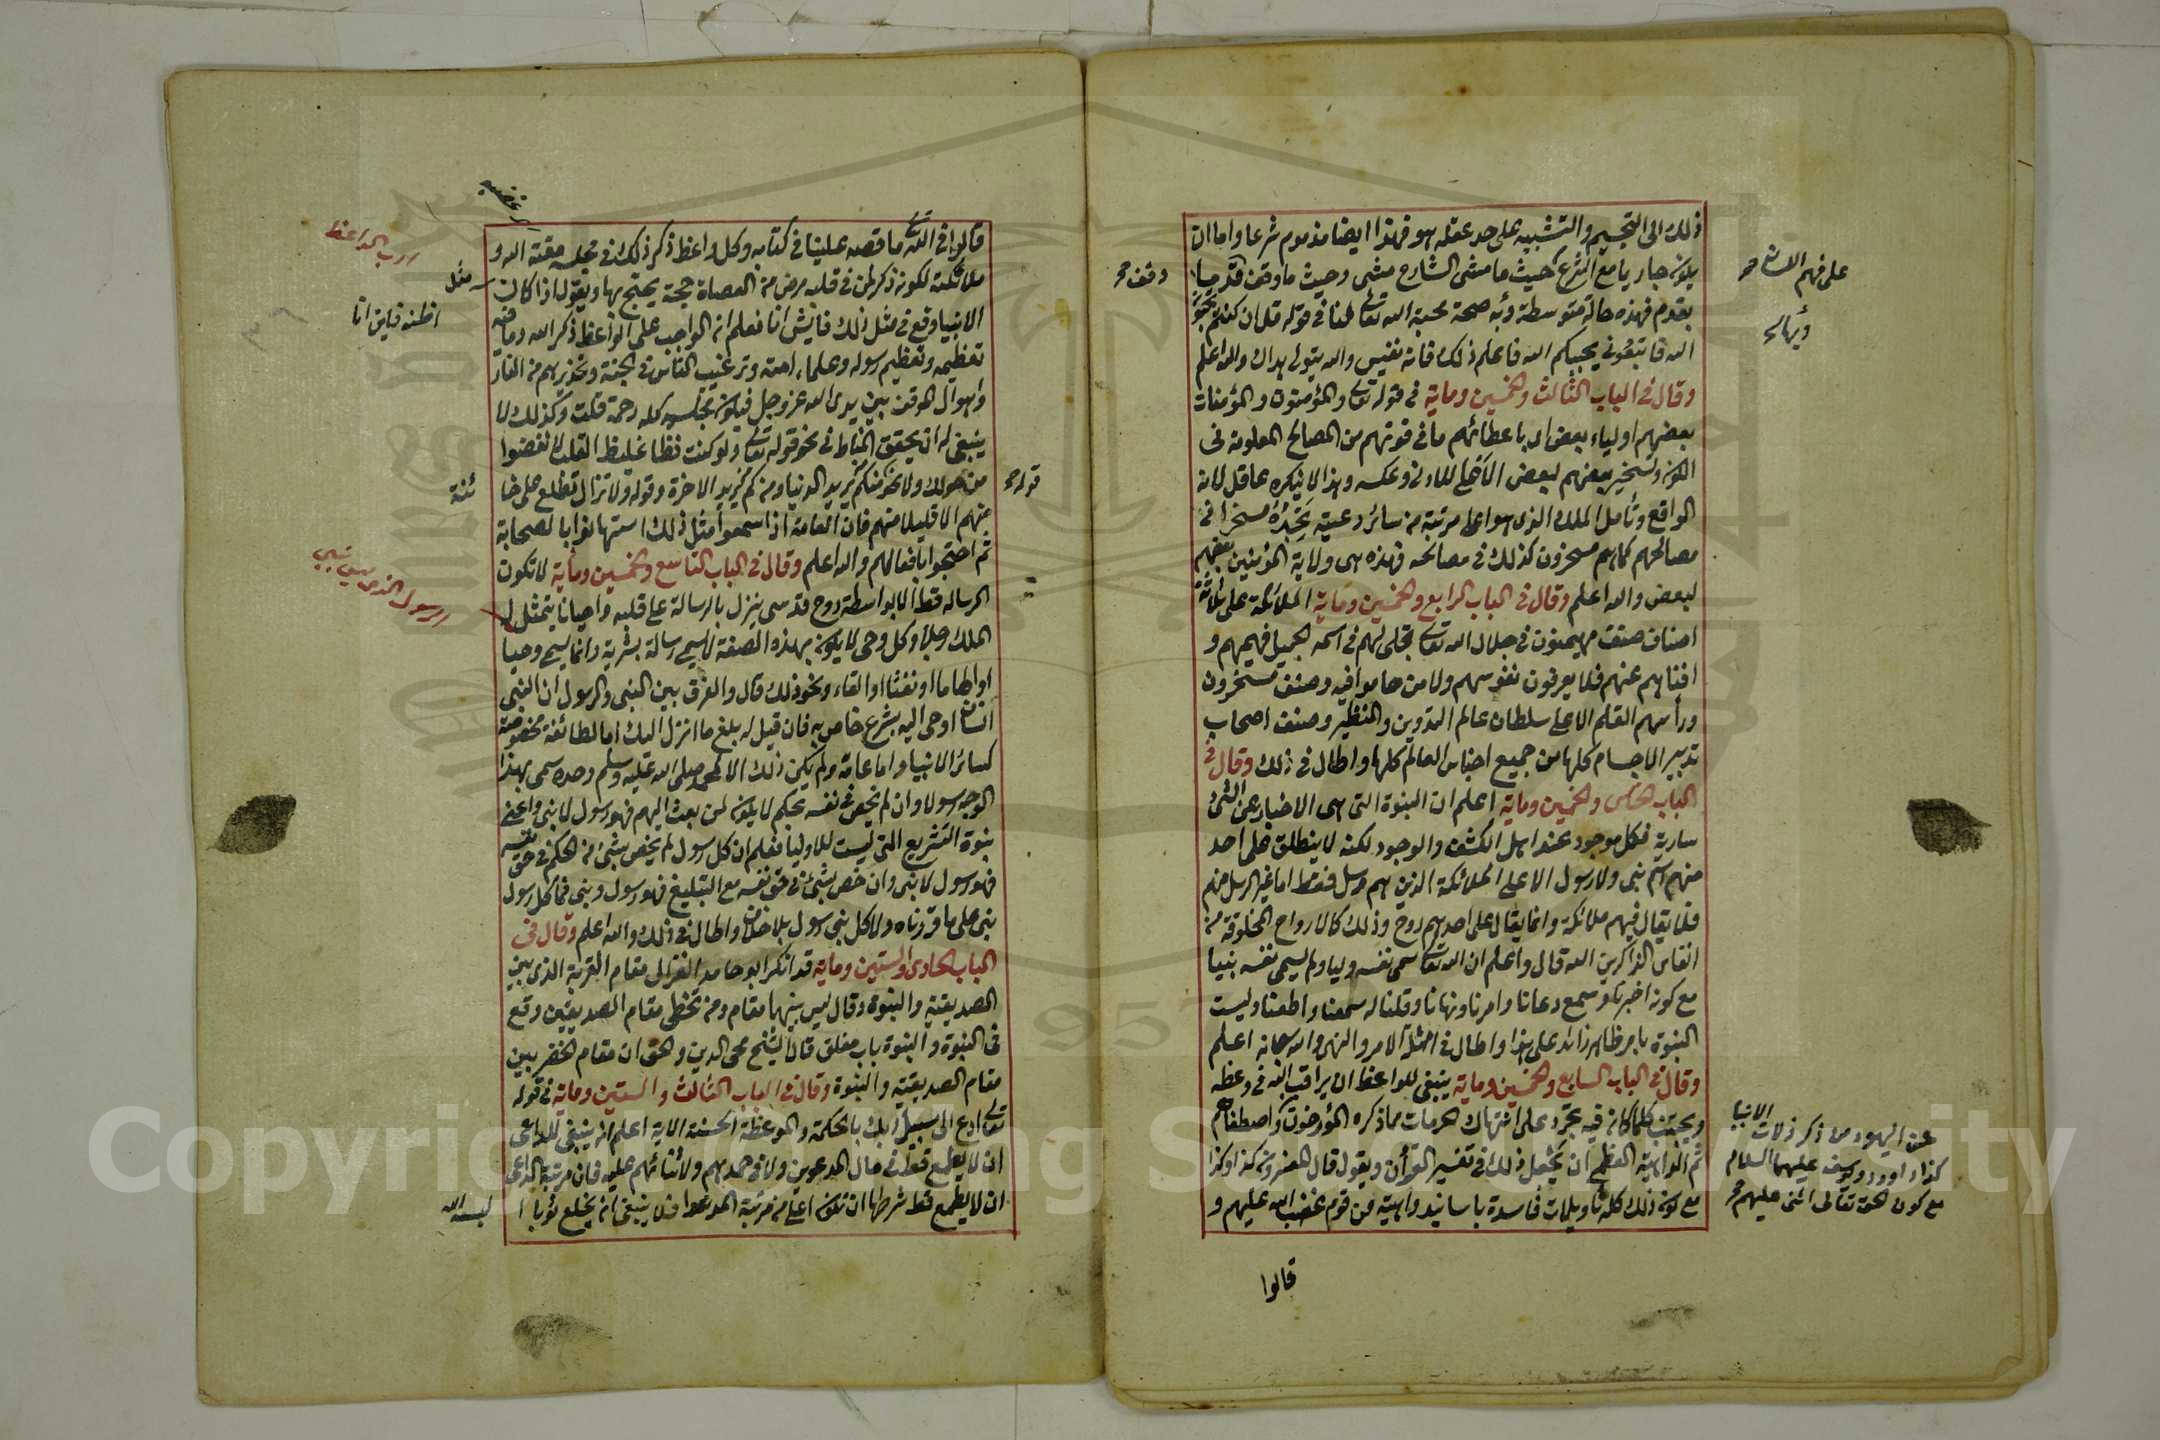 ذلك الى التجسيم والتشبيه على حد عقله هو فهذا ايضا مذموم شرعا واما ان
يكون جاريا مع الشرع حيث ما مشى الشارع مشى وحيث ما وقف قدما
بقدم فهذه حالة متوسطة وبه صحة محبة الله تعالى لنا في قوله قل ان كنتم تحبون
الله فاتبعوني يحببكم الله فاعلم ذلك فانه نفيس والله يتولى هداك والله اعلم
وقال في الباب الثالث والخمسين ومايه في قوله تعالى والمؤمنون والمؤمنات
بعضهم اولياء بعض اي باعطائهم ما في قوتهم من المصالح المعلومة في
الكون وتسخير بعضهم لبعض الاعلى للادنى وعكسه وهذا لا ينكره عاقل لانه
الواقع وتأمل الملك الذي هو اعلى مرتبة من سائر رعيته تجده مسخرا في
مصالحهم كما هم مسخرون كذلك في مصالحه فهذه هي ولاية المؤمنين بعضهم
لبعض والله اعلم وقال في الباب الرابع والخمسين ومايه الملائكة على ثلاثة
اصناف صنف مهيمون في جلال الله تعالى تجلى لهم في اسمه الجميل فهيمهم و
افناهم عنهم فلا يعرفون نفوسهم ولا من هاموا فيه وصنف مسخرون
ورأسهم القلم الاعلى سلطان عالم التدوين والتسطير وصنف اصحاب
تدبير الاجسام كلها من جميع اجناس العالم كلها واطال في ذلك وقال في
الباب الخامس والخمسين ومايه اعلم ان النبوة التي هي الاخبار عن الشئ
سارية في كل موجود عند اهل الكشف والوجود لكنه لا ينطلق على احد
منهم اسم نبي ولا رسول الا على الملائكة الذين هم رسل فقط اما غير الرسل منهم
فلا يقال فيهم ملائكة وانما يقال على احدهم روح وذلك كالارواح المخلوقة من
انفاس الذاكرين الله قال واعلم ان الله تعالى سمى نفسه وليا ولم يسمى نفسه نبيا
مع كونه اخبرنا وسمع دعانا وامرنا ونهانا وقلنا له سمعنا واطعنا وليست
النبوة بامر ظاهر زائد على هذا واطال في امثلة الامر والنهي والله سبحانه اعلم
وقال في الباب السابع والخمسين ومايه ينبغي للواعظ ان يراقب الله في وعظه
ويجتنب كلما كان فيه تجرد على انتهاك الحرمات مما ذكره المؤرخون واصطفاهم
ثم الداهية العظمى ان يجعل ذلك في تفسير القرأن ويقول قال المفسرون كذا وكذا
مع كون ذلك كله تاويلات فاسدة باسانيد واهية من قوم غضب الله عليهم و
على فهم اللسان صح
وبها صح
وقف صح
عن اليهود من ذكر زلات الانبيا
كداود ويوسف عليهما السلام
مع كون الحق تعالى اثنى عليهم صح
قالوا
قالوا في الله تعالى ما قصه علينا في كتابه وكل واعظ ذكر ذلك في مجلسه مقته الله و
ملائكته لكونه ذكر لمن في قلبه مرض من العصاة حجة يحتج بها ويقول اذا كان
الانبيا وقع في مثل ذلك فايش انا فعلم ان الواجب على الواعظ ذكر الله وما فيه
تعظيمه وتعظيم رسوله وعلماء امته وترغيب الناس في الجنة وتحذيرهم من النار
واهوال الموقف بين يدي الله عز وجل فيكون مجلسه كله رحمة قلت وكذلك لا
ينبغي له ان يحقق المناط في نحو قوله تعالى ولو كنت فظا غليظ القلب لانفضوا
من حولك ولا نحو منكم من يريد الدنيا ومنكم من يريد الاخرة وقوله ولا تزال تطلع على خا
منهم الا قليلا منهم فان العامة اذا سمعوا مثل ذلك استهانوا بالصحابة
ثم احتجوا بافعالهم والله اعلم وقال في الباب التاسع والخمسين ومايه لا تكون
الرساله قط الا بواسطة روح قدسي ينزل بالرسالة على قلبه واحيانا يتمثل له
الملك رجلا وكل وحي لا يكون بهذه الصفة لا يسمى رسالة بشرية وانما يسمى وحيا
او الهاما او نفثا او القاء ونحو ذلك قال والفرق بين النبي والرسول ان النبي
انسان اوحي اليه بشرع خاص به فان قيل له بلغ ما انزل اليك اما لطائفة مخصوصة
كسائر الانبيا واما عامة ولم يكن ذلك الا لمحمد صلى الله عليه وسلم وحده سمى بهذا
الوجه رسولا وان لم يخص في نفسه بحكم لا يكون لمن بعث اليهم فهو رسول لا نبي واعني
نبوة التشريع التي ليست للاوليا فعلم ان كل رسول لم يخص بشئ من الحكم في حق نفسه
فهو رسول لا نبي وان خص بشئ في حق نفسه مع التبليغ فهو رسول ونبي فما كل رسول
نبي على ما قررناه ولا كل نبي رسول بلا خلاف واطال في ذلك والله اعلم وقال في
الباب الحادي والستين ومايه قد انكر ابو حامد الغزالي مقام القربة الذي بين
الصديقية والنبوة وقال ليس بينهما مقام ومن تخطى مقام الصديقين وقع
في النبوة والنبوة باب مغلق قال الشيخ محي الدين والحق ان مقام الخضر بين
مقام الصديقية والنبوة وقال في الباب الثالث والستين ومايه في قوله
تعالى ادع الى سبيل ربك بالحكمة والموعظة الحسنة الاية اعلم انه ينبغي للداعي
ان لا يطمع قط في مال المدعوين ولا في حمدهم ولا ثنائهم عليه فان مرتبة الداعي
ان لا يطمع قط شرطها ان تكون اعلى من مرتبة المدعوا فلا ينبغي انه يخلع ثوبا ا
ادب الواعظ
مثل
اظنه فاين انا
قوله صح
ئنة
الرسول الذي ليس بنبي
لبسه الله
Copyright © King Saud University